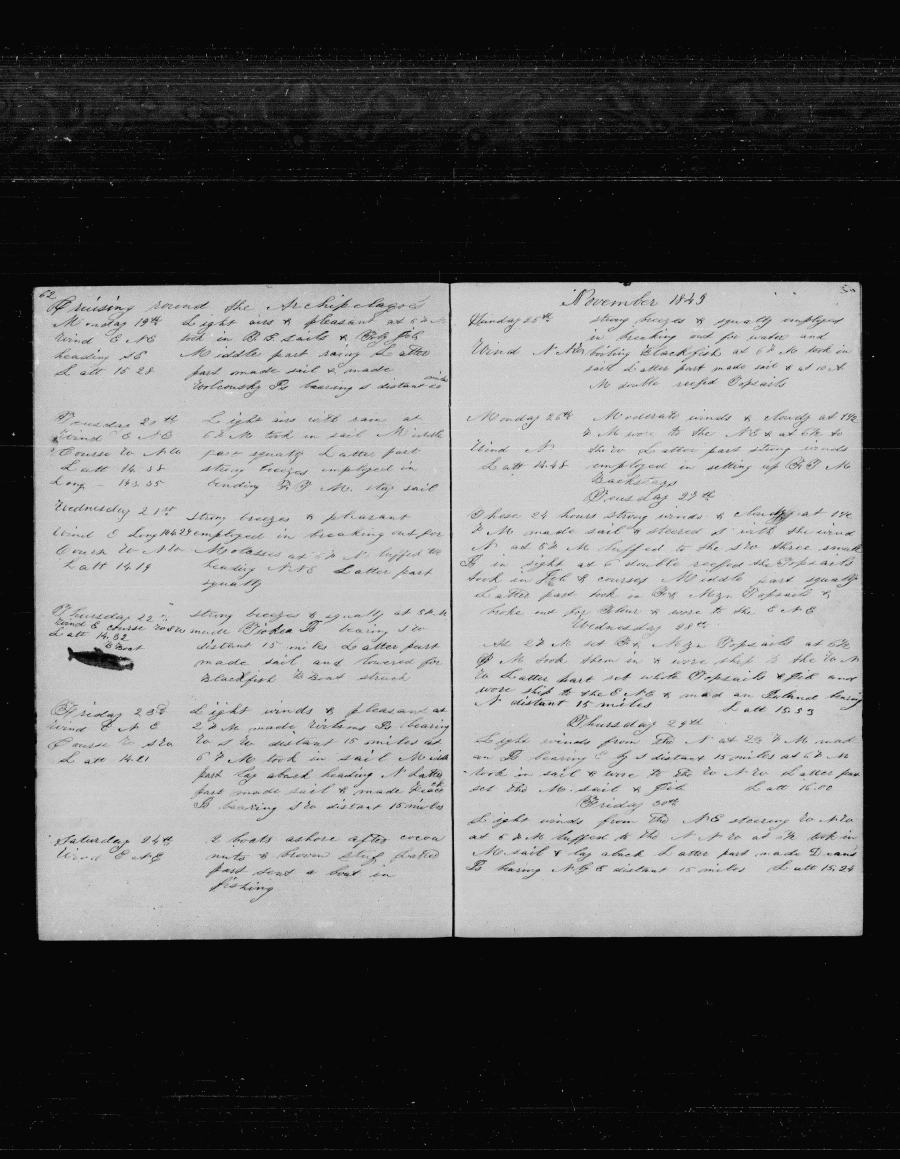 62
Cruising round the Archipelagoes
Monday 19th Light airs & pleasant at 6 P M
Wind E NE took in sails & Jib
heading SE Middle part rainy Latter
Latt 15 28 part made sail & made
Wolconsky Is bearing S distant 20 miles
Tousday 20th Light airs with rain at
Wind E NE 6 P M took in sail Middle
Course W NW part squaly Latter part
Latt 14 38 strong breezes employed in
Long 143.35 bending F T M. stay sail
Wednesday 21st strong breezes & pleasant
Wind E Long 144.24 employed in breaking out for
Course W NW Molasses at 6 P M luffed to
Latt 14.19 heading N NE Latter part
squally
Thursday 22 strong breezes & squally at 2 P M
Wind E course made Tiokea Is bearing S W
Latt 14.32 distant 15 miles Latter part
B Boat made sail and lowered for
Blackfish B Boat struck
Friday 23d Light winds & pleasant at
Wind E N E 2 P M made Wittems Is bearing
Course W S W W S W distant 15 miles at
Latt 14.21 6 P M took in sail Middle
part lay aback heading N Latter
part made sail & made
Is bearing S W distant 15 miles
Saturday 24th 2 boats ashore after cocoa
Wind E NE nuts & broom stuf
part sent a boat in
fishing
November 1849
50
Sunday 25th strong breezes & squally employed
in breaking out for water and
Wind N boiling Blackfish at 6 P M took in
sail Latter part made sail & at 10 A
M double reefed Topsails
Monday 26th Moderate winds & cloudy at 1 1/2
P M wore to the NE & at 6 1/2 to
Wind N the W Latter part strong winds
Latt 14.48 employed in setting up F T M
Backstays
Tousday 27th
These 24 hours strong winds & cloudy at 1 1/2
P M made sail & steered S with the wind
N at 5 P M luffed to the S W three small
Is in sight at 6 double reefed the Topsails
took in Jib & courses Middle part squally
Latter part took in F & Mzn Topsails &
broke out for & wore to the E N E
Wednesday 28th
At 2 P M set F & Mzn Topsails at 6 1/2
P M took them in & wore ship to the W N
W Latter part set whole Topsails & Jib and
wore ship to the E N E & mad an Island bearing
N distant 15 miles Latt 15.53
Thursday 29th
Light winds from the N at 2 1/2 P M mad
an Is bearing E by S distant 15 miles at 6 P M
took in sail & wore to the W N W Latter part
set the M. sail & Jib Latt 16.00
Friday 30th
Light winds from the N E steering W N W
at 5 P M luffed to the N N W at 7 1/2 took in
M sail & lay aback Latter part made Deans
Is bearing N by E distant 15 miles Latt 15.24